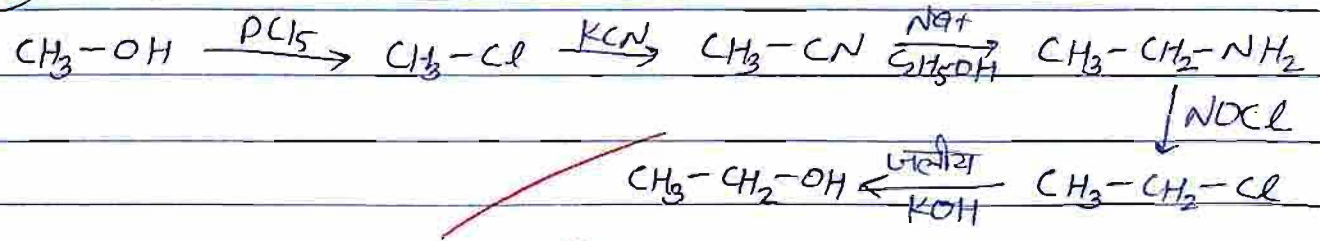 CH3-OH PCl5→ CH3-Cl KCN→ CH3-CN Na+ C2H5OH→ CH3-CH2-NH2
↓ NOCl
CH3-CH2-OH ← जलीय KOH CH3-CH2-Cl